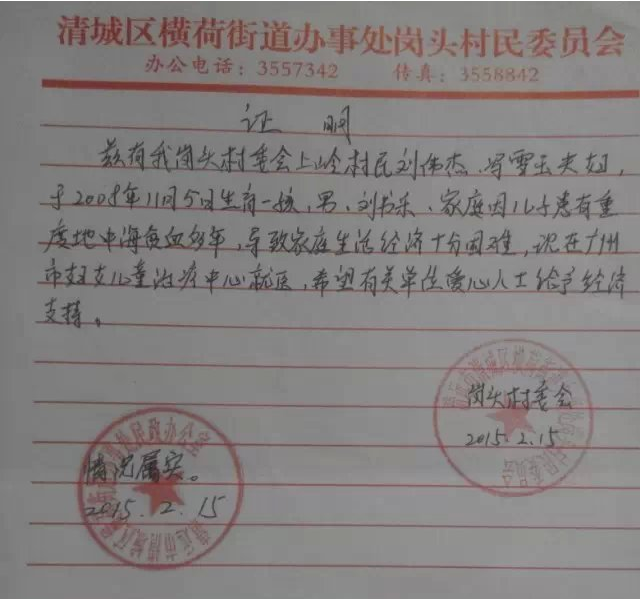 清城区横荷街道办事处岗头村民委员会
办公电话：3557342 传真：3558842
证 明
兹有我岗头村委会上岭村民刘伟杰、冯雪玉夫妇，
于2008年11月5日生育一孩，男，刘书乐、家庭因儿子患有重
度地中海贫血多年，导致家庭生活经济十分困难，现在广州
市妇女儿童治疗中心就医，希望有关单位爱心人士给予经济
支持。
岗头村委会
2015.2.15
情况属实。
2015.2.15